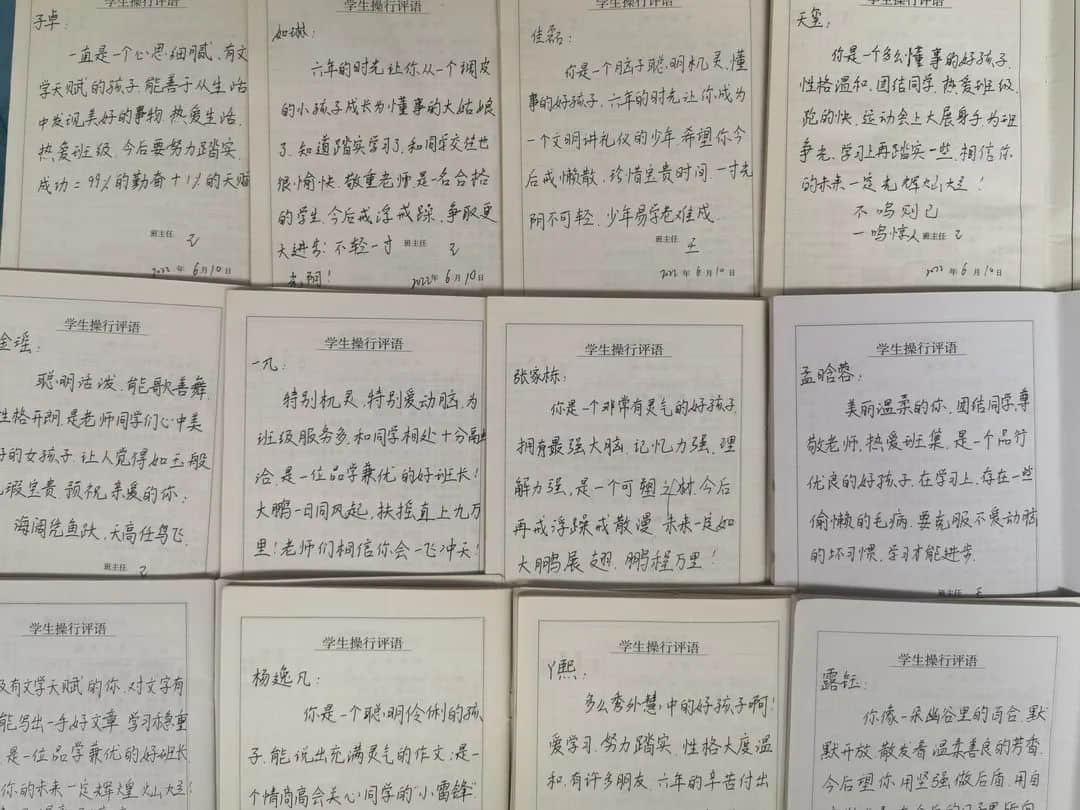 学生操行评语
子卓：
一直是一个心思细腻、有文
学天赋的孩子，能善于从生活
中发现美好的事物，热爱生活，
热爱班级，今后要努力踏实，
成功=99%的勤奋+1%的天赋
班主任 王
2022年6月10日
学生操行评语
如琳：
六年的时光让你从一个调皮
的小孩子成长为懂事的大姑娘
了，知道踏实学习了，和同学交往也
很愉快，敬重老师，是一名合格
的学生，今后戒浮戒躁，争取更
大进步！不轻一寸
光阴！
班主任 王
2022年6月10日
学生操行评语
佳磊：
你是一个脑子聪明机灵、懂
事的好孩子，六年的时光让你成为
一个文明讲礼仪的少年，希望你今
后戒懒散，珍惜宝贵时间，一寸光
阴不可轻，少年易学老难成。
班主任 王
2022年6月10日
学生操行评语
天玺：
你是一个多么懂事的好孩子，
性格温和，团结同学，热爱班级，
跑的快，运动会上大展身手，为班
争光，学习上再踏实一些，相信你
的未来一定光辉灿烂！
不鸣则已
一鸣惊人
班主任 王
2022年6月10日
学生操行评语
金瑶：
聪明活泼，能歌善舞，
性格开朗，是老师同学们心中美
好的女孩子，让人觉得如玉般
瑕宝贵，预祝亲爱的你：
海阔凭鱼跃，天高任鸟飞。
班主任 王
学生操行评语
一凡：
特别机灵，特别爱动脑，为
班级服务多，和同学相处十分融
洽，是一位品学兼优的好班长！
大鹏一日同风起，扶摇直上九万
里！老师们相信你会一飞冲天！
学生操行评语
张家栋：
你是一个非常有灵气的好孩子，
拥有最强大脑，记忆力强，理
解力强，是一个可塑之材，今后
再戒浮躁戒散漫，未来一定如
大鹏展翅，鹏程万里！
学生操行评语
孟晗蓉：
美丽温柔的你，团结同学，尊
敬老师，热爱班集，是一个品行
优良的好孩子，在学习上，存在一些
偷懒的毛病，要克服不爱动脑
的坏习惯，学习才能进步。
班主任 王
学生操行评语
及有文学天赋的你，对文字有
能写出一手好文章，学习稳重
是一位品学兼优的好班长
你的未来一定辉煌灿烂！
学生操行评语
杨逸凡：
你是一个聪明伶俐的孩
子，能说出充满灵气的作文，是一
个情尚高会关心同学的“小雷锋”
学生操行评语
丫熙：
多么秀外慧中的好孩子啊！
爱学习，努力踏实，性格大度温
和，有许多朋友，六年的辛苦付出
学生操行评语
露钰：
你像一朵幽谷里的百合，默
默开放，散发着温柔善良的芳香
今后望你用坚强做后盾，用自